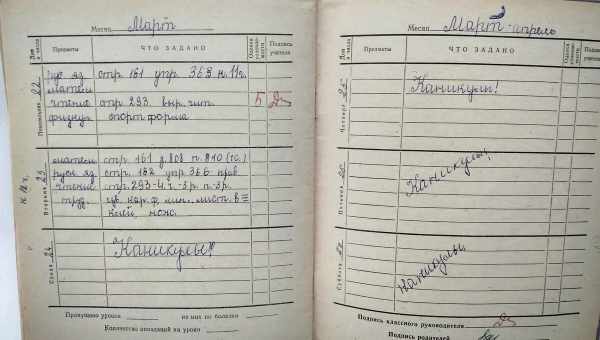 Месяц Март
Дни и числа Предметы ЧТО ЗАДАНО Оценка успеваемости Подпись учителя
Понедельник 22
рус яз. стр. 161 упр. 365 к 11ч.
матем
чтение стр 293. выр. чит. 5
физкул спорт форма
к 12 ч.
Вторник 23
матем стр. 161 д. 808 п. 810 (1с.)
русск яз стр. 162 упр 366 прав
чтение стр. 293-4. ч.-3р. п.-3р.
труд. цв. кар. ф. мин. лист. в
клей, нож.
Среда 24
Каникулы!
Пропущено уроков из них по болезни
Количество опозданий на уроки
Месяц Март-апрель
Дни и числа Предметы ЧТО ЗАДАНО Оценка успеваемости Подпись учителя
Четверг 25
Каникулы!
Пятница
Каникулы
Суббота 27
Каникулы
Подпись классного руководителя
Подпись родителей